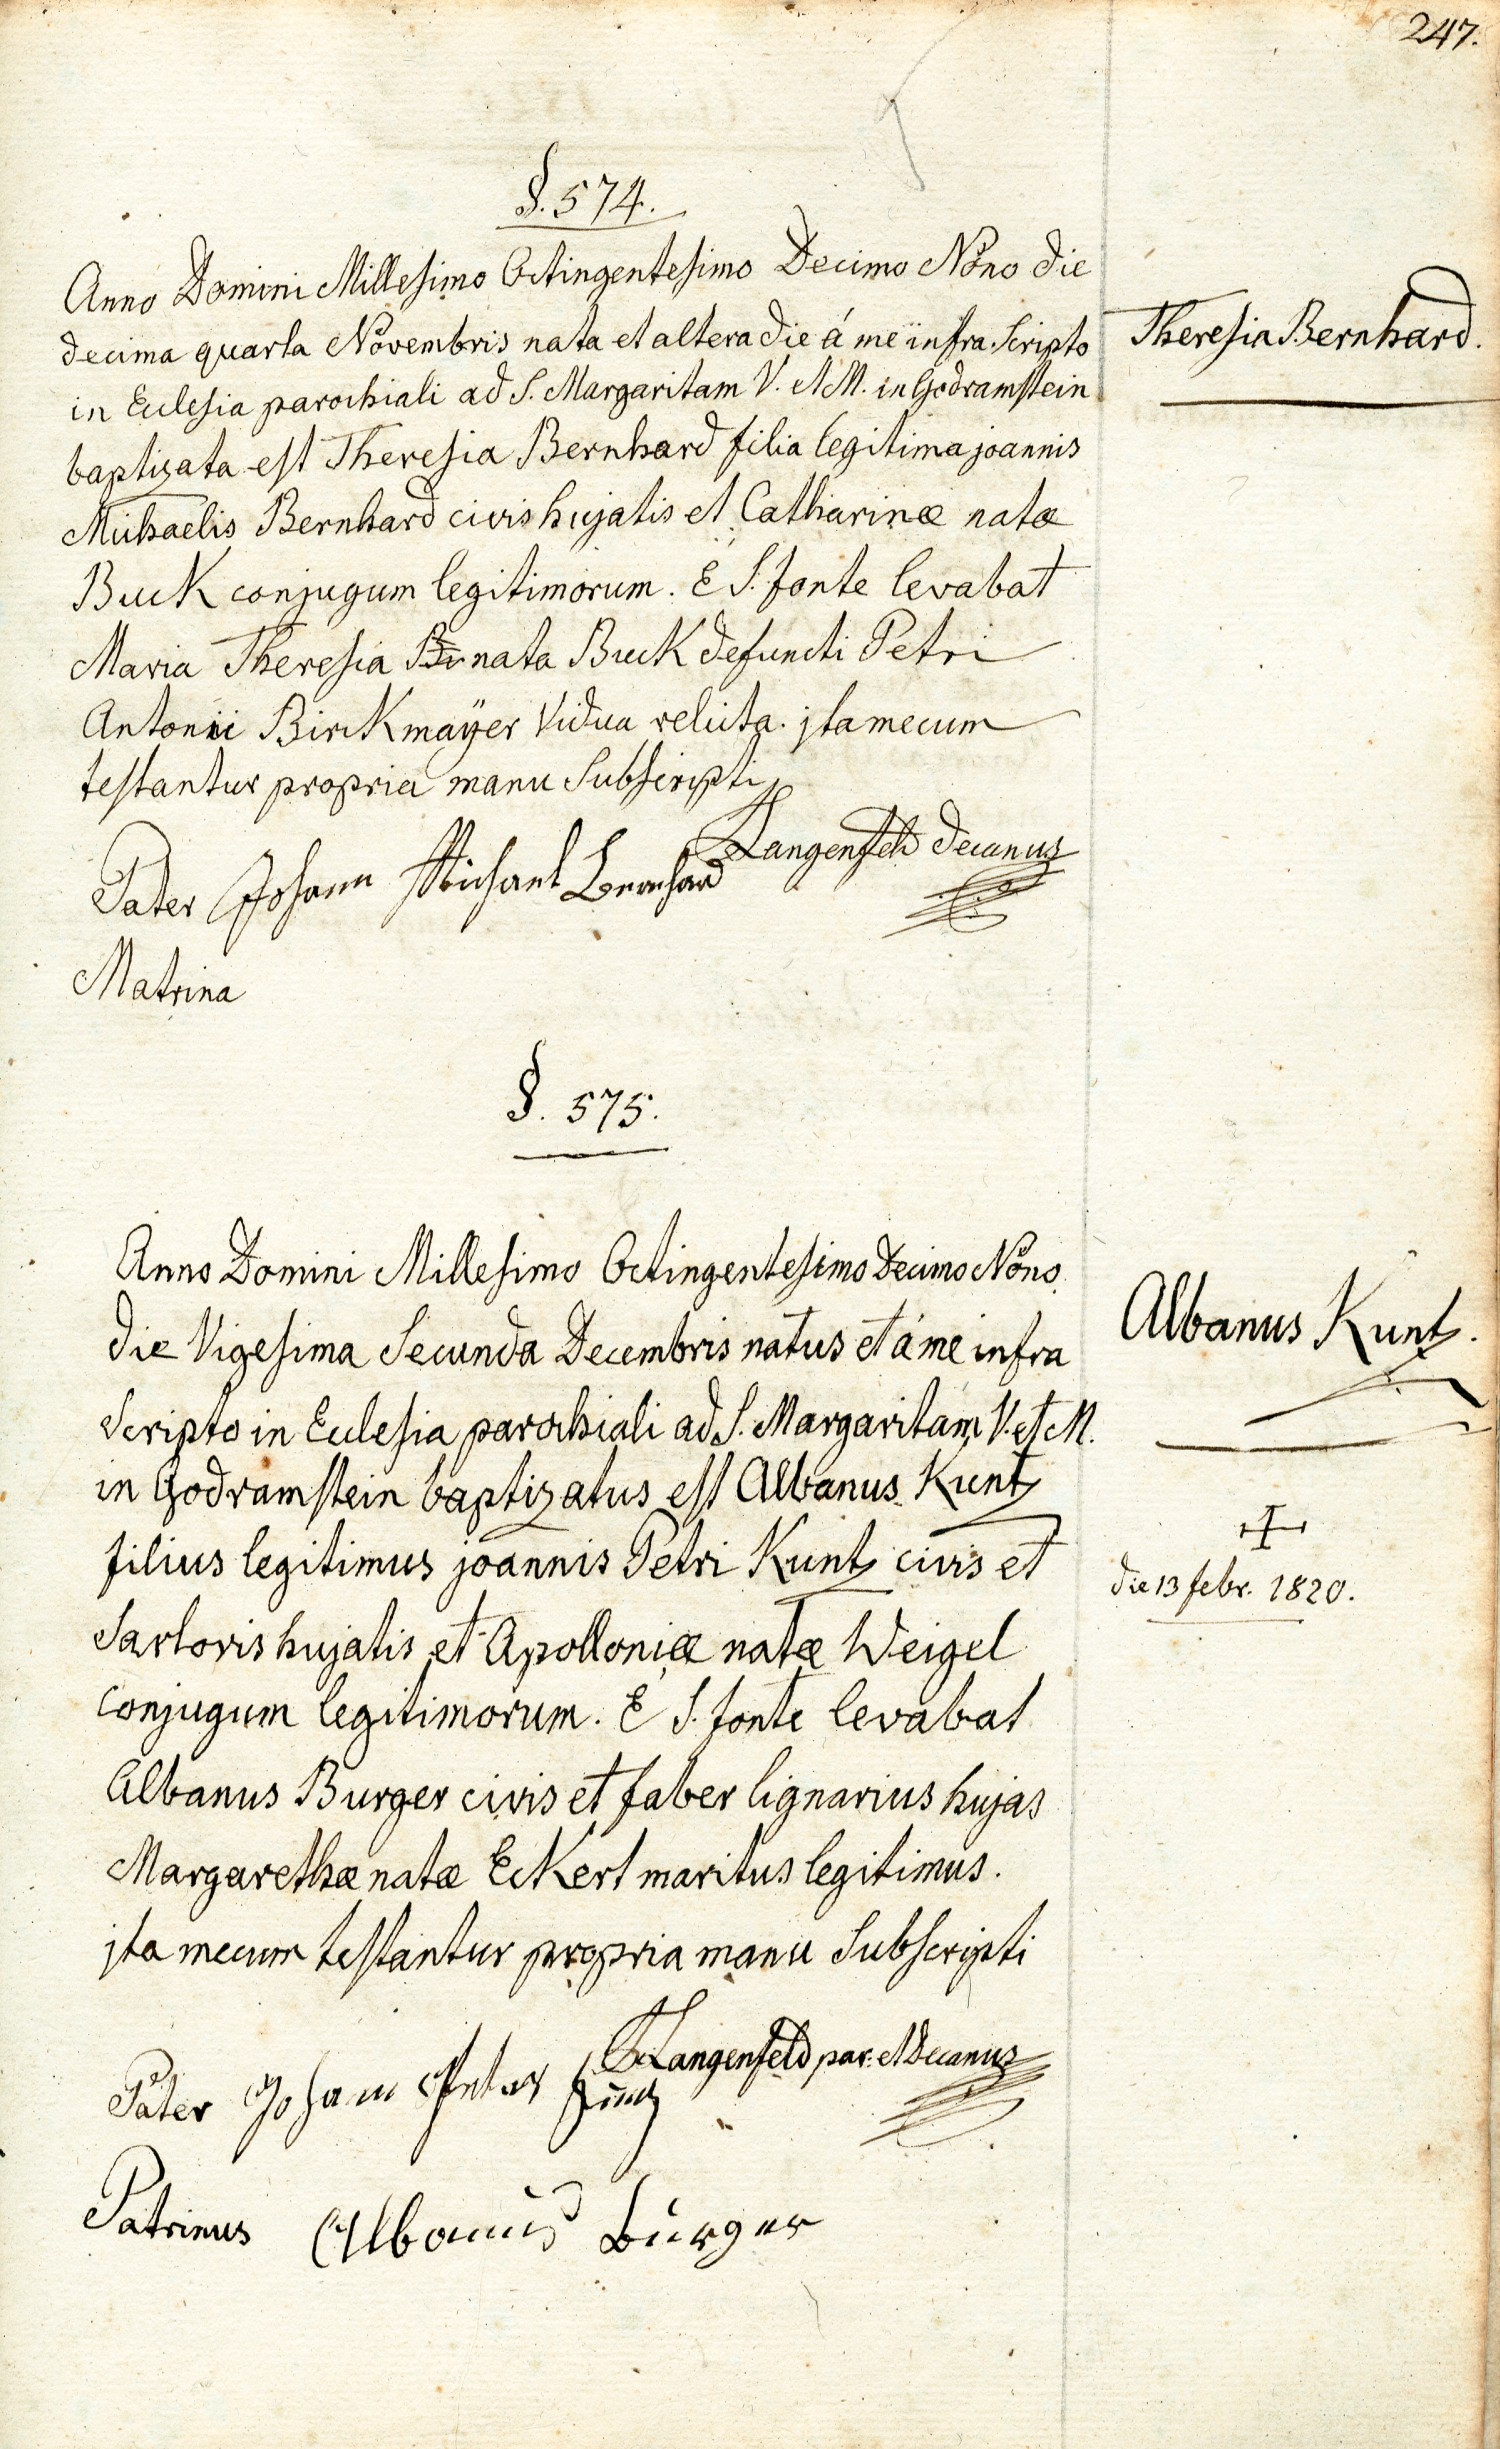 247.
§. 574.
Anno Domini Millesimo Octingentesimo Decimo Nono die
decima quarta Novembris nata et altera die á me infra Scripto
in Eclesia parochiali ad S. Margaritam V. et M. in Godramstein
baptizata est Theresia Bernhard filia legitima joannis
Michaelis Bernhard civis hujatis et Catharinæ natæ
Buck conjugum legitimorum. É S. fonte levabat
Maria Theresia nata Buck defuncti Petri
Antonii Birckmaÿer Vidua relicta. jta mecum
testantur propria manu Subscripti
Langenfeld decanus
Pater Johann Michael Bernhard
Matrina
Theresia Bernhard.
§. 575.
Anno Domini Millesimo Octingentesimo Decimo Nono
die Vigesima Secunda Decembris natus et á me infra
Scripto in Eclesia parochiali ad S. Margaritam V. et M.
in Godramstein baptizatus est Albanus Kuntz
filius legitimus joannis Petri Kuntz civis et
Sartoris hujatis et Apolloniæ natæ Weigel
conjugum legitimorum. É S. fonte levabat
Albanus Burger civis et faber lignarius hujas
Margarethæ natæ Eckert maritus legitimus.
jta mecum testantur propria manu Subscripti
Langenfeld par. et Decanus
Pater Johann Peter
Patrinus Albanus Burger
Albanus Kuntz.
die 13 febr. 1820.